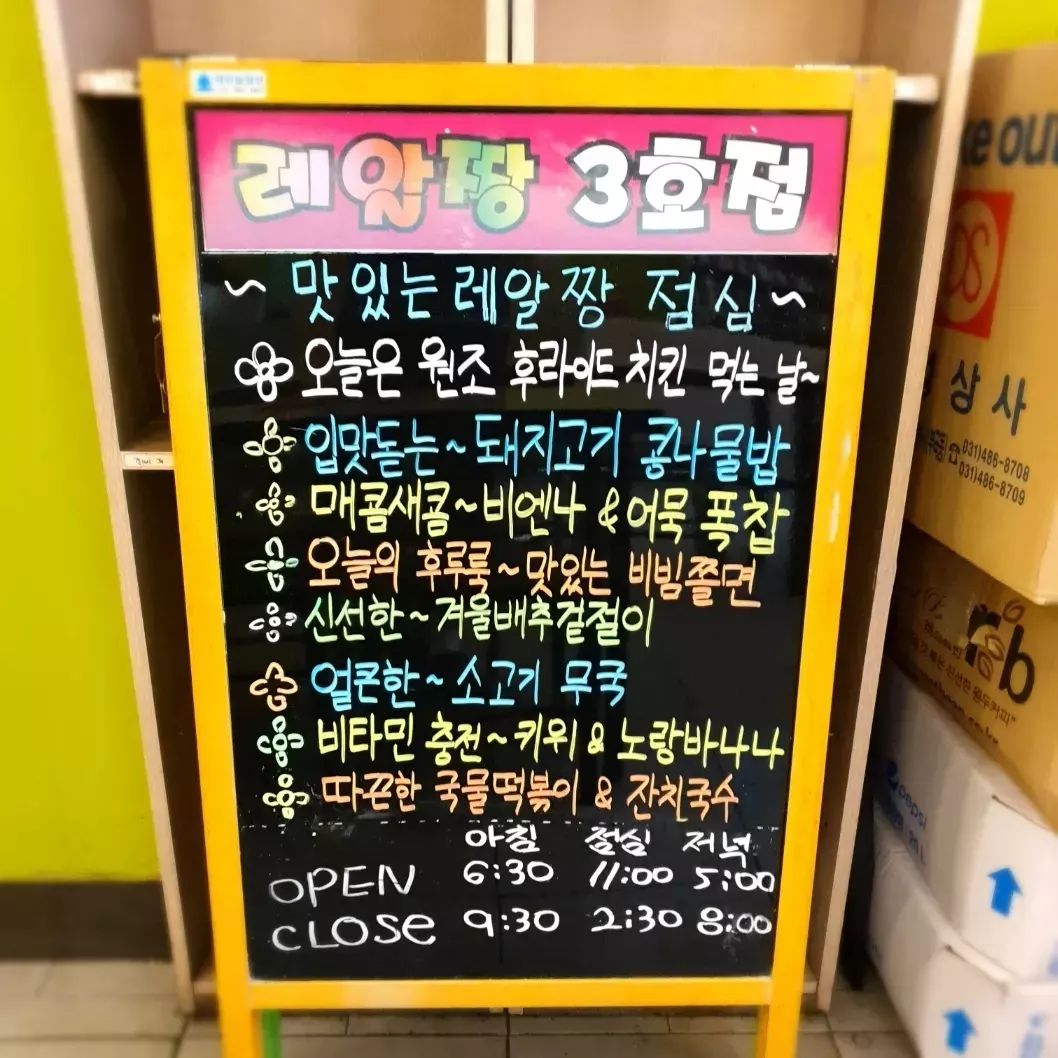 레알짱 3호점
~ 맛있는 레알짱 점심 ~
오늘은 원조 후라이드 치킨 먹는 날~
입맛돋는~돼지고기 콩나물밥
매콤새콤~비엔나 & 어묵 폭찹
오늘의 후루룩~맛있는 비빔쫄면
신선한~겨울배추겉절이
얼큰한~소고기 무국
비타민 충전~키위 & 노랑바나나
따끈한 국물떡볶이 & 잔치국수
아침 점심 저녁
OPEN 6:30 11:00 5:00
CLOSE 9:30 2:30 8:00
ke out
상사
031)486-8708
031)486-8709
rb
pepsi